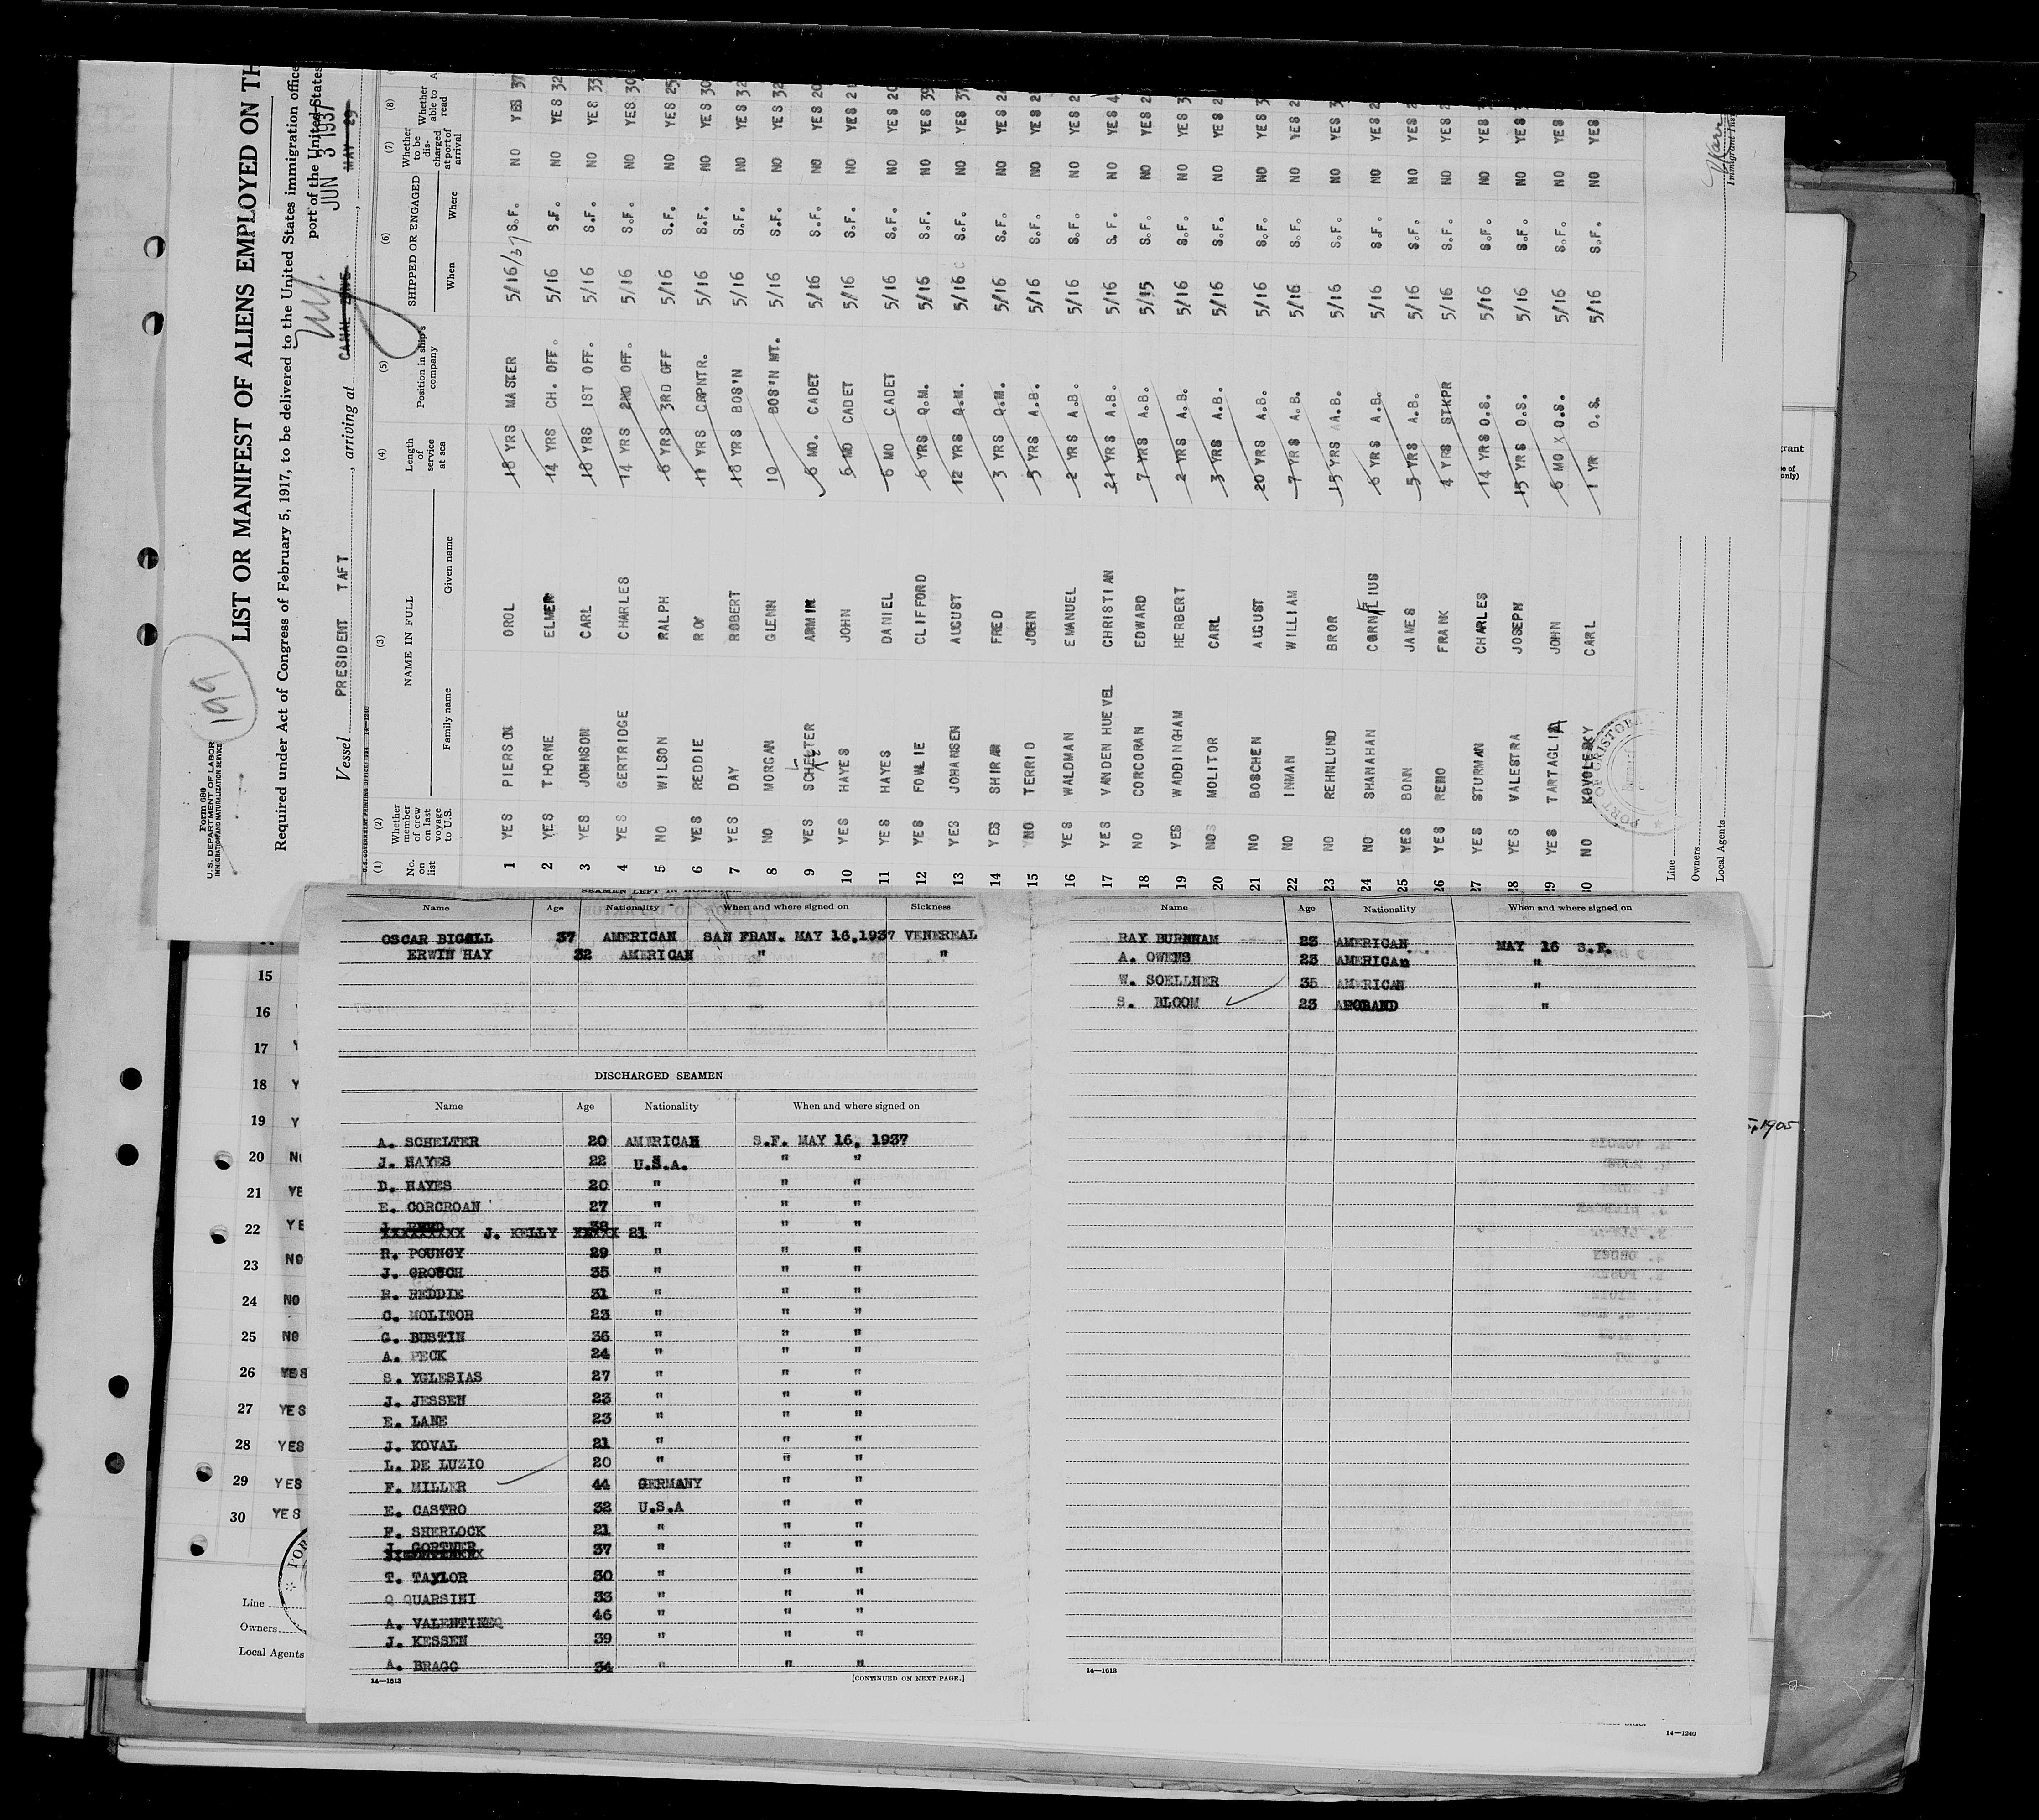 Form 680
U.S. DEPARTMENT OF LABOR
IMMIGRATION AND NATURALIZATION SERVICE
199
LIST OR MANIFEST OF ALIENS EMPLOYED ON TH
Required under Act of Congress of February 5, 1917, to be delivered to the United States immigration office
port of the United States
JUN 3 1937
Vessel PRESIDENT TAFT, arriving at CANAL ZONE, MAY 29
U.S. GOVERNMENT PRINTING OFFICE 14—1240
(1) (2) (3) (4) (5) (6) (7) (8)
No. on list Whether member of crew on last voyage to U.S. NAME IN FULL Length of service at sea Position in ship's company SHIPPED OR ENGAGED Whether to be discharged at port of arrival Whether able to read A
Family name Given name When Where
1 YES PIERSON OROL 18 YRS MASTER 5/16/37 S.F. NO YES 37
2 YES THORNE ELMER 14 YRS CH. OFF. 5/16 S.F. NO YES 32
3 YES JOHNSON CARL 18 YRS 1ST OFF. 5/16 S.F. NO YES 33
4 YES GERTRIDGE CHARLES 14 YRS 2ND OFF. 5/16 S.F. NO YES 30
5 NO WILSON RALPH 6 YRS 3RD OFF 5/16 S.F. NO YES 25
6 YES REDDIE ROY 11 YRS CRPNTR. 5/16 S.F. NO YES 30
7 YES DAY ROBERT 18 YRS BOS'N 5/16 S.F. NO YES 32
8 NO MORGAN GLENN 10 BOS'N MT. 5/16 S.F. NO YES 32
9 YES SCHELTER ARMIN 6 MO. CADET 5/16 S.F. NO YES 20
10 YES HAYES JOHN 6 MO CADET 5/16 S.F. NO YES 2
11 YES HAYES DANIEL 6 MO CADET 5/16 S.F. NO YES 20
12 YES FOWLIE CLIFFORD 6 YRS Q.M. 5/16 S.F. NO YES 39
13 YES JOHANSEN AUGUST 12 YRS Q.M. 5/16 S.F. NO YES 37
14 YES SHIRAR FRED 3 YRS Q.M. 5/16 S.F. NO YES 2
15 NO TERRIO JOHN 5 YRS A.B. 5/16 S.F. NO YES 2
16 YES WALDMAN EMANUEL 2 YRS A.B. 5/16 S.F. NO YES 2
17 YES VANDEN HUEVEL CHRISTIAN 21 YRS A.B. 5/16 S.F. NO YES 4
18 NO CORCORAN EDWARD 7 YRS A.B. 5/15 S.F. NO YES 2
19 YES WADDINGHAM HERBERT 2 YRS A.B. 5/16 S.F. NO YES 3
20 NO MOLITOR CARL 3 YRS A.B. 5/16 S.F. NO YES 2
21 NO BOSCHEN AUGUST 20 YRS A.B. 5/16 S.F. NO YES 3
22 NO INMAN WILLIAM 7 YRS A.B. 5/16 S.F. NO YES 2
23 NO REHNLUND BROR 15 YRS A.B. 5/16 S.F. NO YES 3
24 NO SHANAHAN CORNELIUS 6 YRS A.B. 5/16 S.F. NO YES 2
25 YES BONN JAMES 5 YRS A.B. 5/16 S.F. NO YES 2
26 YES RENO FRANK 4 YRS STKPR 5/16 S.F. NO YES 2
27 YES STURMAN CHARLES 14 YRS O.S. 5/16 S.F. NO YES 3
28 YES VALESTRA JOSEPH 15 YRS O.S. 5/16 S.F. NO YES
29 YES TARTAGLIA JOHN 6 MO X O.S. 5/16 S.F. NO YES
30 NO KOVOLESKY CARL 1 YR O.S. 5/16 S.F. NO YES
PORT OF CRISTOBAL
Line
Owners
Local Agents
Immigrant Insp
SEAMEN LEFT IN HOSPITAL
Name Age Nationality When and where signed on Sickness
OSCAR BIGALL 37 AMERICAN SAN FRAN. MAY 16,1937 VENEREAL
ERWIN HAY 32 AMERICAN " "
DISCHARGED SEAMEN
Name Age Nationality When and where signed on
A. SCHELTER 20 AMERICAN S.F. MAY 16, 1937
J. HAYES 22 U.S.A. " "
D. HAYES 20 " " "
E. CORCROAN 27 " " "
J. REED 38 " " "
XXXXXXXXX J. KELLY XXXXX 21
R. POUNCY 29 " " "
J. CROUCH 35 " " "
R. REDDIE 31 " " "
C. MOLITOR 23 " " "
G. BUSTIN 36 " " "
A. PECK 24 " " "
S. YGLESIAS 27 " " "
J. JESSEN 23 " " "
E. LANE 23 " " "
J. KOVAL 21 " " "
L. DE LUZIO 20 " " "
F. MILLER 44 GERMANY " "
E. CASTRO 32 U.S.A " "
F. SHERLOCK 21 " " "
J. GORTNER 37 " " "
T. TAYLOR 30 " " "
Q QUARSINI 33 " " "
A. VALENTINE 46 " " "
J. KESSEN 39 " " "
A. BRAGG 34 " " "
14—1613 [CONTINUED ON NEXT PAGE.]
Name Age Nationality When and where signed on
RAY BURNHAM 23 AMERICAN MAY 16 S.F.
A. OWENS 23 AMERICAN "
W. SOELLNER 35 AMERICAN "
S. BLOOM 23 POLAND "
14—1613
15
16
17 Y
18 Y
19 Y
20 N
21 YE
22 YE
23 NO
24 NO
25 NO
26 YES
27 YES
28 YES
29 YES
30 YES
Line
Owners
Local Agents
grant
only)
1905
14—1240